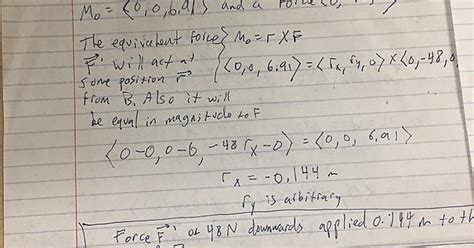 M₀ = ⟨0, 0, 6.91⟩ and a Force ⟨0,
The equivalent force { M₀ = r X F
F' will act at
some position r { ⟨0, 0, 6.91⟩ = ⟨rₓ, r_y, 0⟩ X ⟨0, -48, 0
from B. Also it will
be equal in magnitude to F
⟨0-0, 0-0, -48 rₓ - 0⟩ = ⟨0, 0, 6.91⟩
rₓ = -0.144 m
r_y is arbitrary
Force F' of 48 N downwards applied 0.144 m to th